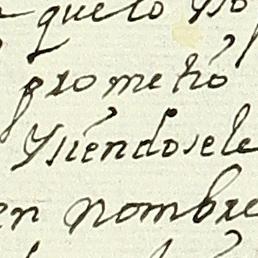 que lo yso
prometió
ysiendosele
en nombre